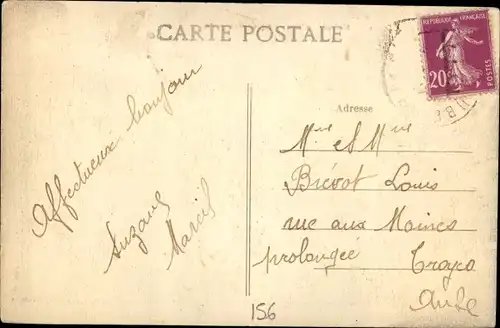 CARTE POSTALE
REPUBLIQUE FRANÇAISE
20
POSTES
Adresse
Affectueux bonjour
Suzane
Marcel
Mr et Mme
Brévot Louis
rue aux Moines
prolongée Troyes
Aube
156